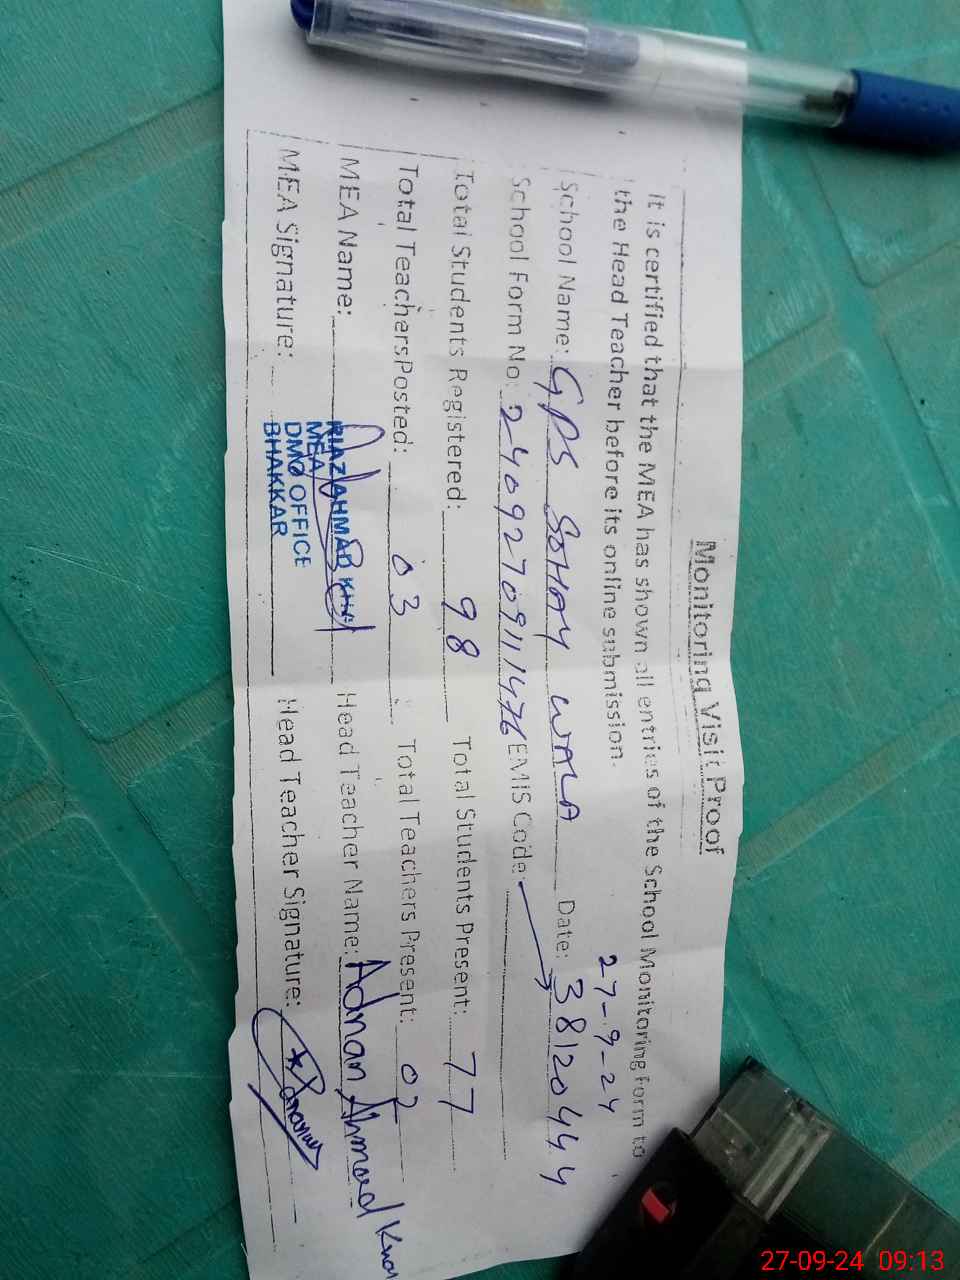 Monitoring Visit Proof
It is certified that the MEA has shown all entries of the School Monitoring form to
the Head Teacher before its online submission.
27-9-24
School Name: GPS SOHAY WALA Date: 38120444
School Form No: 24092709111476 EMIS Code:
Total Students Registered: 98 Total Students Present: 77
Total Teachers Posted: 03 Total Teachers Present: 02
MEA Name: Head Teacher Name: Adnan Ahmad Khan
RIAZ AHMAD KHAN
MEA
DMO OFFICE
BHAKKAR
MEA Signature: Head Teacher Signature:
27-09-24 09:13